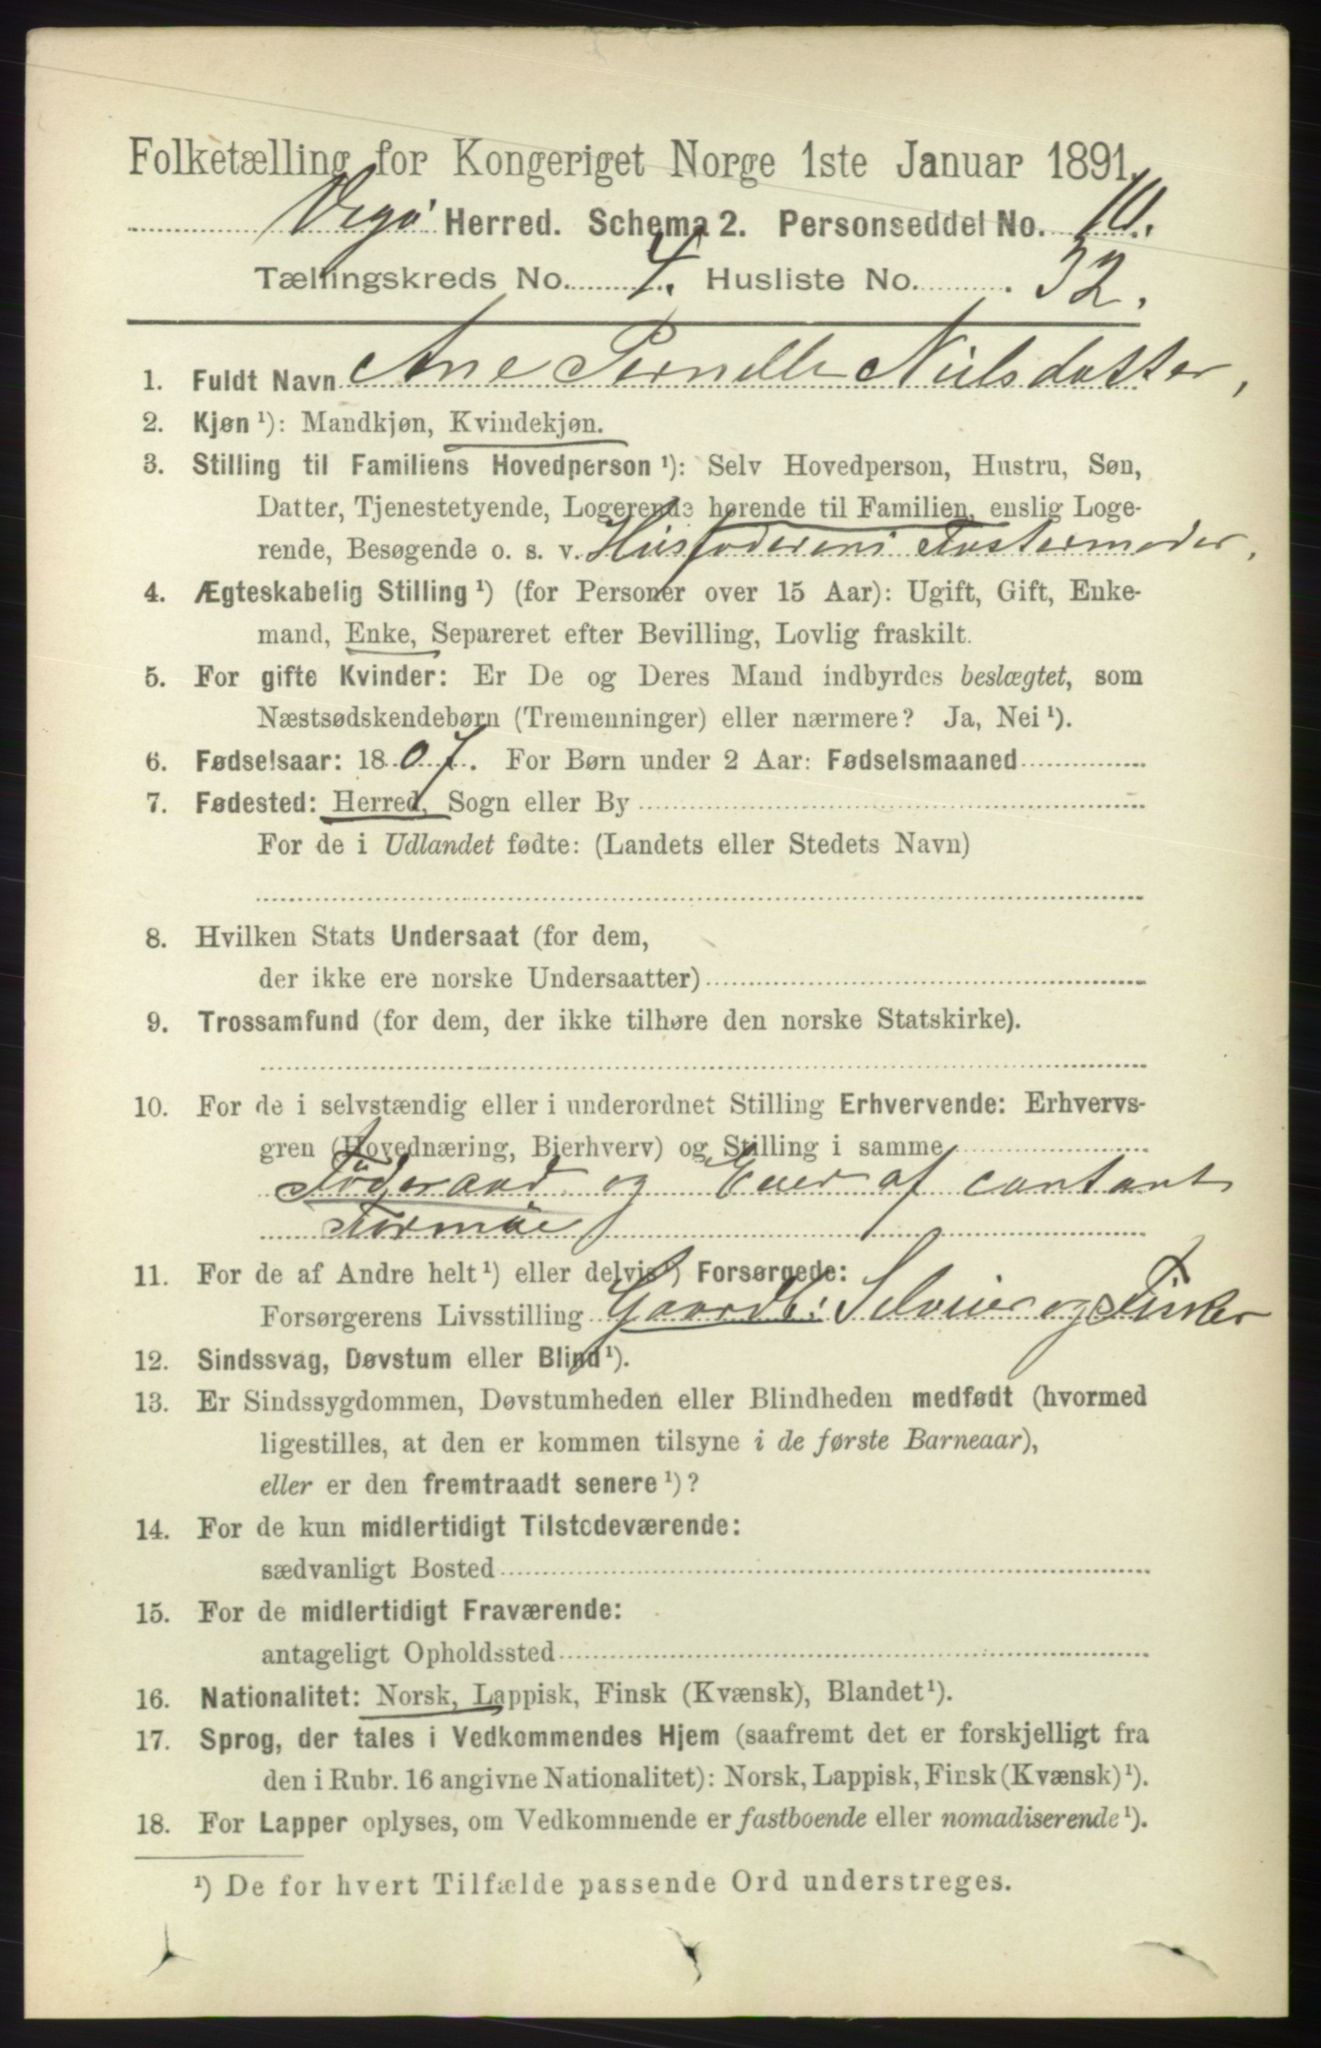 Folketælling for Kongeriget Norge 1ste Januar 1891.
Vegø Herred. Schema 2. Personseddel No. 10.
Tællingskreds No. 4. Husliste No. 32.
1. Fuldt Navn Ane Pernelle Nielsdatter,
2. Kjøn ¹): Mandkjøn, Kvindekjøn.
3. Stilling til Familiens Hovedperson ¹): Selv Hovedperson, Hustru, Søn,
Datter, Tjenestetyende, Logerende hørende til Familien, enslig Loge-
rende, Besøgende o. s. v. Husfaderens Fostermoder,
4. Ægteskabelig Stilling ¹) (for Personer over 15 Aar): Ugift, Gift, Enke-
mand, Enke, Separeret efter Bevilling, Lovlig fraskilt.
5. For gifte Kvinder: Er De og Deres Mand indbyrdes beslægtet, som
Næstsødskendebørn (Tremenninger) eller nærmere? Ja, Nei ¹).
6. Fødselsaar: 1807. For Børn under 2 Aar: Fødselsmaaned
7. Fødested: Herred, Sogn eller By
For de i Udlandet fødte: (Landets eller Stedets Navn)
8. Hvilken Stats Undersaat (for dem,
der ikke ere norske Undersaatter)
9. Trossamfund (for dem, der ikke tilhøre den norske Statskirke).
10. For de i selvstændig eller i underordnet Stilling Erhvervende: Erhvervs-
gren (Hovednæring, Bierhverv) og Stilling i samme
Føderaad og Eier af contant
Formue
11. For de af Andre helt ¹) eller delvis ¹) Forsørgede:
Forsørgerens Livsstilling Gaardb: Selveier og Fisker
12. Sindssvag, Døvstum eller Blind ¹).
13. Er Sindssygdommen, Døvstumheden eller Blindheden medfødt (hvormed
ligestilles, at den er kommen tilsyne i de første Barneaar),
eller er den fremtraadt senere ¹)?
14. For de kun midlertidigt Tilstedeværende:
sædvanligt Bosted
15. For de midlertidigt Fraværende:
antageligt Opholdssted
16. Nationalitet: Norsk, Lappisk, Finsk (Kvænsk), Blandet ¹).
17. Sprog, der tales i Vedkommendes Hjem (saafremt det er forskjelligt fra
den i Rubr. 16 angivne Nationalitet): Norsk, Lappisk, Finsk (Kvænsk) ¹).
18. For Lapper oplyses, om Vedkommende er fastboende eller nomadiserende ¹).
¹) De for hvert Tilfælde passende Ord understreges.